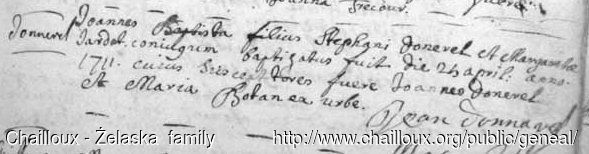 Joanna Trecour.
Donneret
Joannes Baptista filius Stephani Doneret et Margaritae
Jardet coniugum baptizatus fuit die 24 april. anno
1711. cuius susceptores fuere Joannes Doneret
et Maria Botan ex urbe.
Jean Donnavel
Chailloux - Żelaska family http://www.chailloux.org/public/geneal/